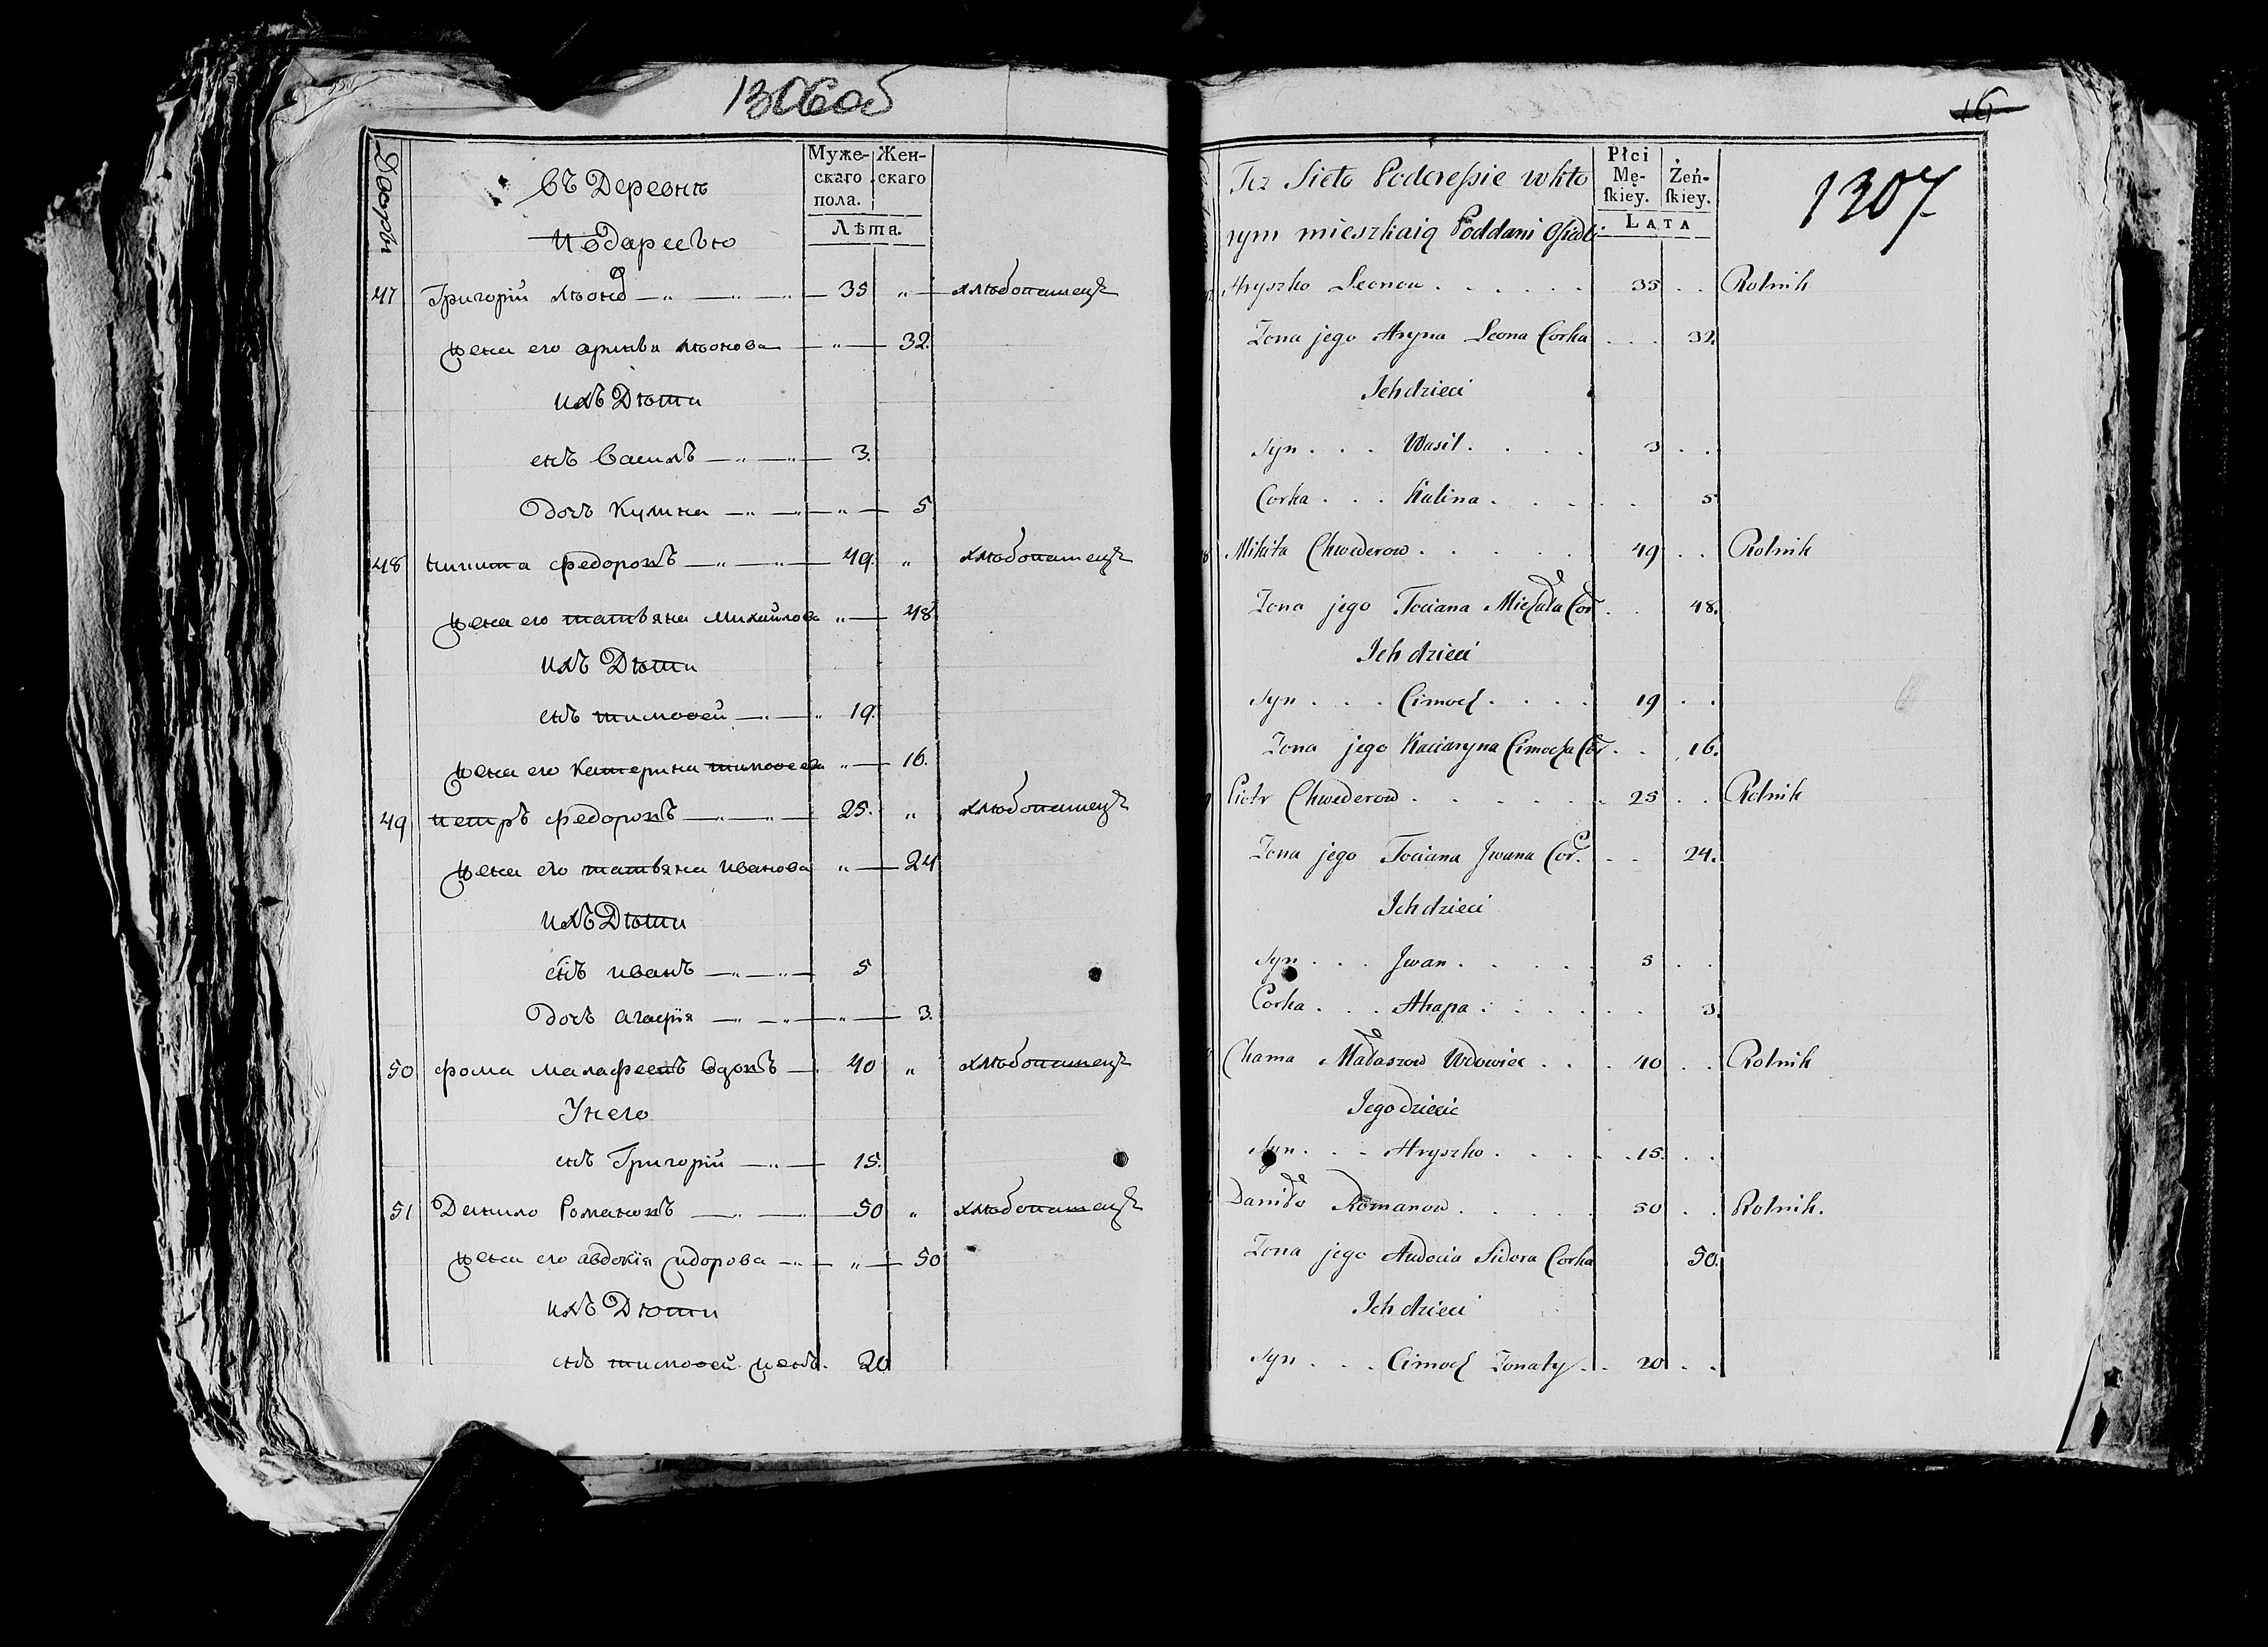 1306об
Дворы
Муже-
скаго
пола.
Жен-
скаго
Лѣта.
въ Деревнѣ
47 Григорий 35 „ хлѣбопашецъ
жена его 32.
ихъ Дѣти
снъ Василъ 3.
дочь Кулина „ 5
48 никита федоровъ 49. „ хлѣбопашецъ
жена его татьяна михайлова „ 48
ихъ Дѣти
снъ тимофей 19.
жена его катерина „ 16.
49 петръ федоровъ 25. „ хлѣбопашецъ
жена его татьяна иванова „ 24
ихъ Дѣти
снъ иванъ 5
дочь агафия „ 3.
50 фома малафеевъ вдовъ 40 „ хлѣбопашецъ
У него
снъ Григорий 15.
51 Данило Романовъ 50 „ хлѣбопашецъ
жена его авдокия сидорова „ 50
ихъ Дѣти
снъ тимофей женъ. 20
16
1307
Płci
Mę-
skiey.
Żeń-
skiey.
LATA
Też Sioło Podereßie w kto
rym mieszkaią Poddani Osiedli
Hryszko Leonow 35 Rolnik
Zona jego Aryna Leona Corka 32.
Ich dzieci
Syn Wasil 3
Corka Kulina 5
Mikita Chwederow 49 Rolnik
Zona jego Tociana Michała Cor 48.
Ich dzieci
Syn Cimoch 19
Zona jego Kaciaryna Cimocha Cor 16.
Piotr Chwederow 25 Rolnik
Zona jego Tociana Jwana Cor. 24.
Ich dzieci
Syn Jwan 5
Corka Ahapa 3.
Chama Małaszow Wdowiec 40 Rolnik
Jego dziecie
Syn Hryszko 15.
Daniło Romanow 50 Rolnik.
Zona jego Audocia Sidora Corka 50.
Ich dzieci
Syn Cimoch Zonaty 20